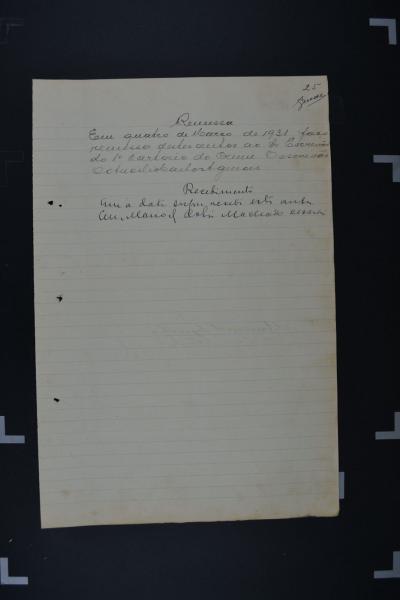 25
Remessa
Em quatro de Março de 1931, faço
remessa destes autos ao Sr. Escrivão
do 1º Cartorio do Crime. O escrivão
Recebimento
Em a data supra, recebi estes autos.
Eu, Manoel José Machado, escrivão